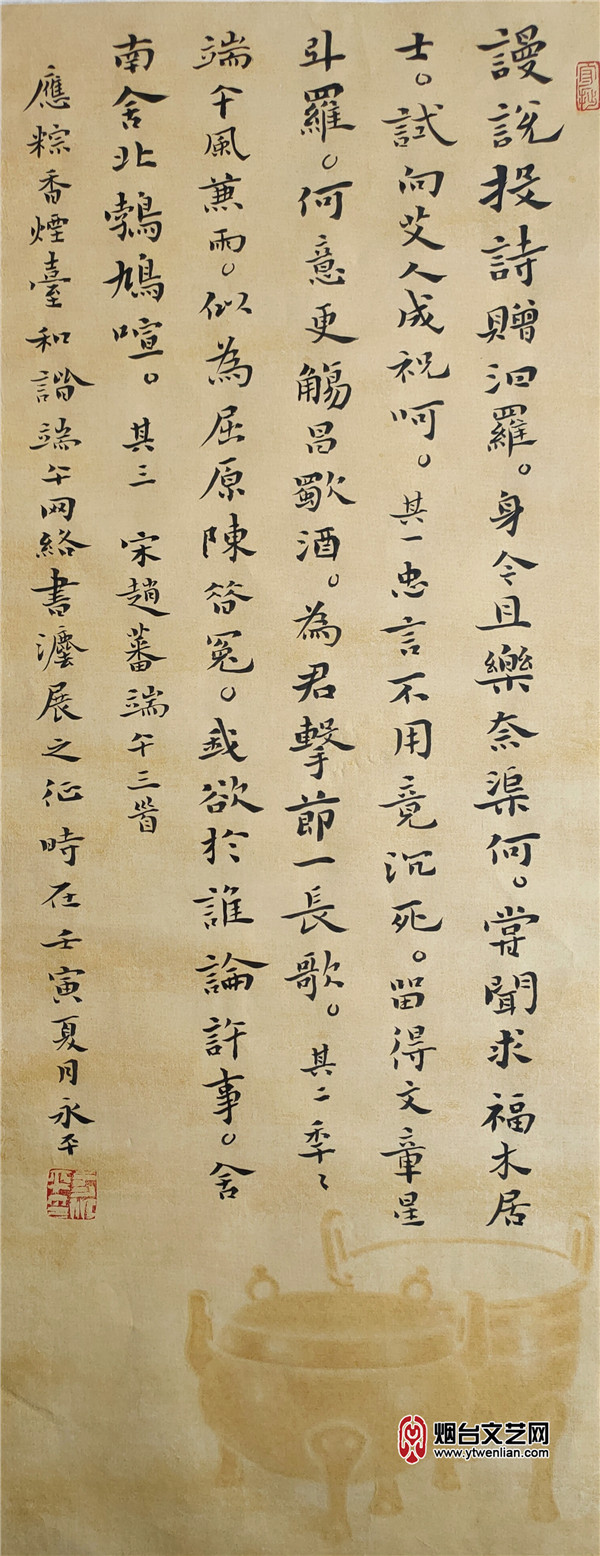 謾說投詩贈汨羅。身令且樂奈渠何。嘗聞求福木居
士。試向艾人成祝呵。其一忠言不用竟沉死。留得文章星
斗羅。何意更觴昌歜酒。為君擊節一長歌。其二季〻
端午風蒹雨。似為屈原陳昝冤。我欲於誰論許事。舍
南舍北鵓鳩喧。其三 宋趙蕃端午三首
應粽香煙臺和諧端午网絡書瀍展之征時在壬寅夏月永平
烟台文艺网
www.ytwenlian.com